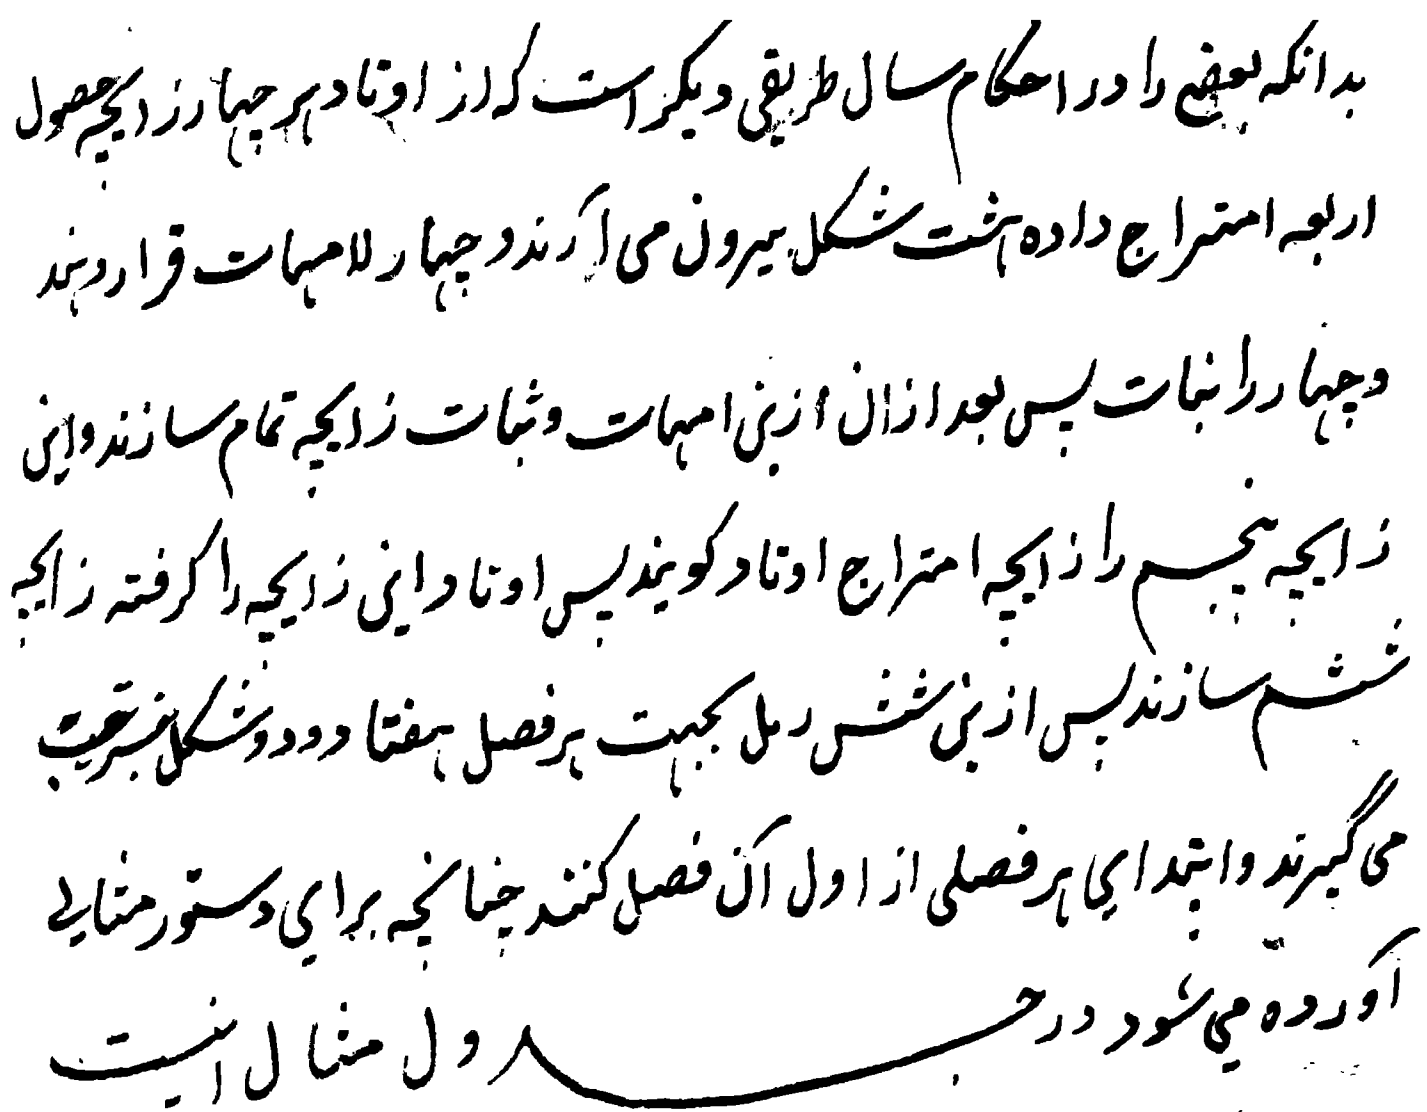 بدانکه بعضی را در احکام سال طریقی دیگر است که از اوتاد هر چهار زایچه حصول
اربعه امتزاج داده هشت شکل بیرون می آرند و چهار را امهات قرار دهند
و چهار را بنات پس بعد ازان ازین امهات و بنات زایچه تمام سازند و این
زایچه پنجم را زایچه امتزاج اوتاد گویند پس اوتاد این زایچه را گرفته زایچه
ششم سازند پس ازین شش رمل بجهت هر فصل هفتاد و دو شکل بترتیب
می گیرند و ابتدای هر فصلی از اول آن فصل کنند چنانچه برای دستور مثالی
آورده می شود در جدول مثال اینست